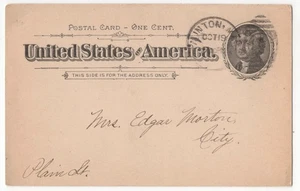 POSTAL CARD – ONE CENT.
United States of America.
THIS SIDE IS FOR THE ADDRESS ONLY.
OCT 15
Mrs. Edgar Morton,
City.
Plain St.